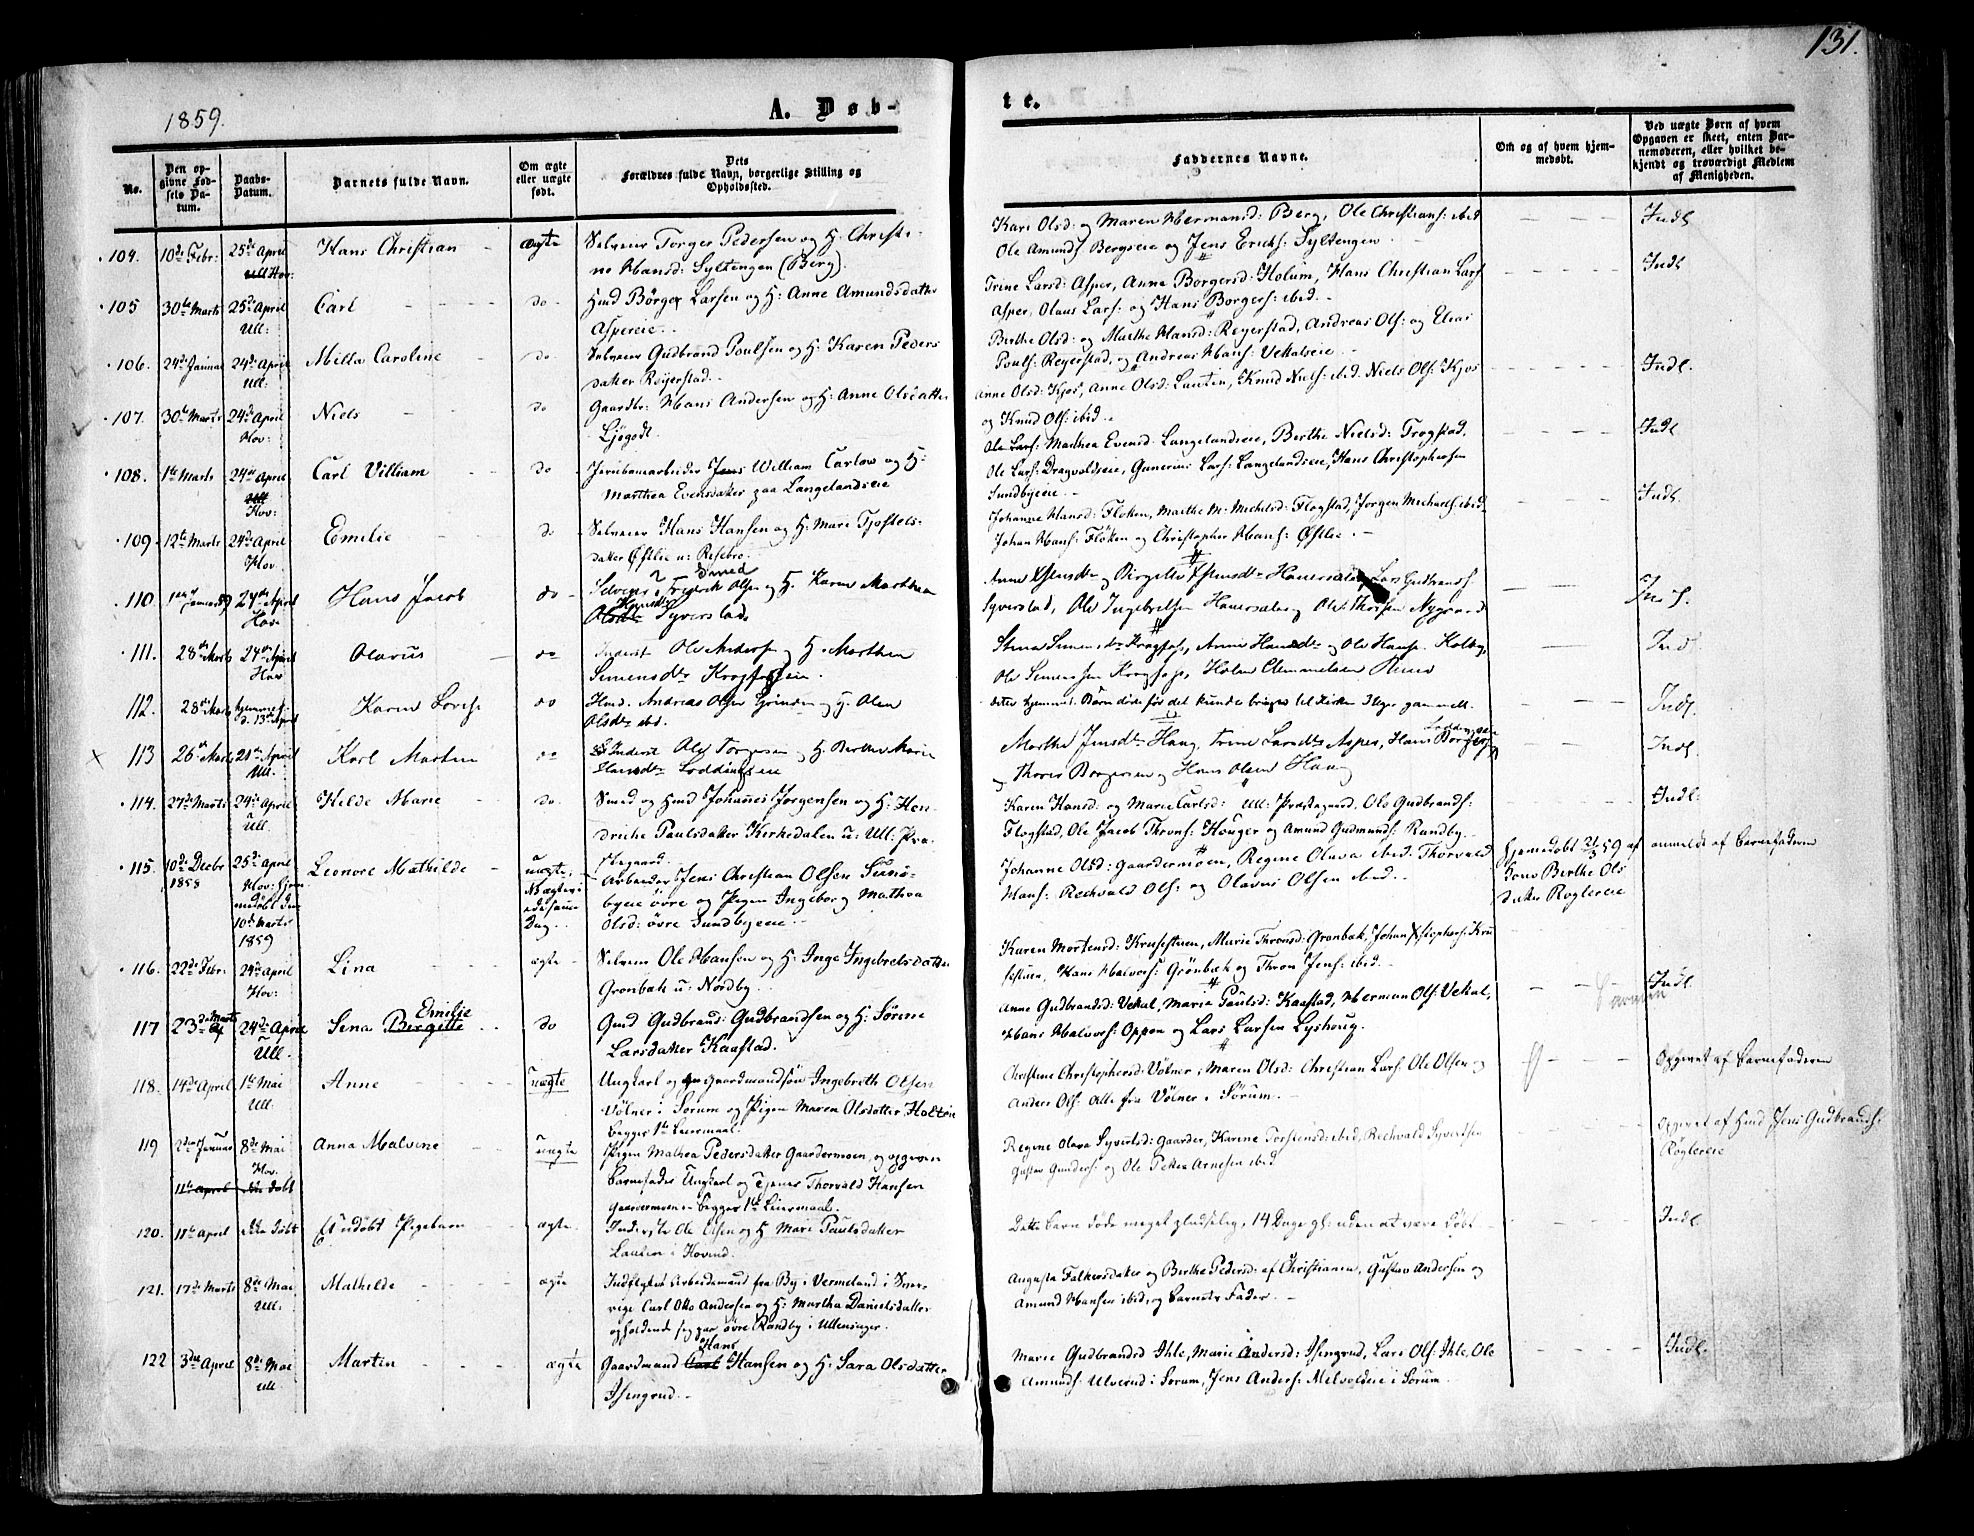 131.
1859.
A. Døb-
te.
No.
Den opgivne Fødsels Datum.
Daabs-Datum.
Barnets fulde Navn.
Om ægte eller uægte født.
Dets Forældres fulde Navn, borgerlige Stilling og Opholdssted.
Faddernes Navne.
Om og af hvem hjemmedøbt.
Ved uægte Børn af hvem Opgaven er skeet, enten Barnemoderen, eller hvilket bekjendt og troværdigt Medlem af Menigheden.
104. 10de Febr: 25de April Hans Christian ægte Selveier Torger Pedersen og H. Christi-
Ull Hov: ne Hansd: Syltengen (Berg).
Kari Olsd: og Maren Hermansd: Berg, Ole Christians: ibid Indl
Ole Amunds: Bergseie og Jens Ericks: Syltengen
105 30te Marts 25de April Carl do Hmd Børger Larsen og H: Anne Amundsdatter
Ull: Aspereie
Trine Larsd: Asper, Anna Borgersd: Holum, Hans Christian Lars: Indl
Asper, Olaus Lars: og Hans Borgers: ibid.
106. 24de Januar 24de April Milla Caroline do Selveier Gudbrand Poulsen og H: Karen Peders
Ull: datter Røyerstad
Berthe Olsd: og Marthe Hansd: Reyerstad, Andreas Ols: og Elias
Pouls: Reyerstad, og Andreas Hans: Vekalseie Indl.
107. 30te Marts 24de April Niels do Gaardbr: Hans Andersen og H: Anne Olsdatter
Hov: Ljøgodt.
Anne Olsd: Kjos, Anne Olsd: Lauten, Knud Niels: ibid. Niels Ols: Kjos
og Knud Ols: ibid. Indl
108. 1te Marts 24de April Carl Villiam do Jernbanearbeider Jens William Carlow og H:
Ull Hov: Marthea Evensdatter paa Langelandseie
Ole Lars: Marthea Evensd: Langelandseie, Berthe Nielsd: Trogstad,
Ole Lars: Dragvoldseie, Gunerius Lars: Langelandseie, Hans Christophersen
Sundbyeie. Indl.
109. 12te Marts 24de April Emilie do Selveier Hans Hansen og H: Mari Tjostels-
Hov. datter Østlie u: Risebro.
Johanne Hansd: Floken, Marthe M. Michelsd: Flogstad, Jørgen Michaels: ibid
Johan Hans: Fløken og Christopher Hans: Østlie.
110. 24de April Hans Jacob do Selveier Fredrik Olsen og H. Karen Marthea
Smed
Hov Olsdtr Syverstad
Syverstad, Ole Ingebretsen Hauerseter og Ole Thorsen Nygaard Indl.
111. 28de Marts 24de April Olavus do Inderst Ole Anders: og H. Marthea
Hov Simensdtr Krogfosseie.
Stina Simensdtr Krogfoss, Anne Hansdtr og Ole Hansen Kolby Indl
Ole Simensen Krogfoss, Holm Clemmetsen
112. 28de Marts hjemmet Karen Lovise do Hmd. Andreas Olsen Grinden og H. Olea
d. 13de April Olsdtr ibid.
døbt hjemmet. Barn døde før det kunde bringes til Kirken 3 Uger gammelt. Indl.
113 26de Marts 21de April Karl Martin do Inderst Ole Torgersen og H. Berthe Marie
Ull. Hansdtr Loddingseie
Marthe Jensdtr Haug, Trine Larsdtr Asper, Hans Borgersen
og Thorer Borgersen og Hans Olsen Haug Indl.
114. 27de Marts 24de April Hilde Marie do Smed og Hmd Johannes Jorgensen og H: Hen-
Ull. driche Paulsdatter Kirkedalen u: Ull: Præ-
stegaard.
Karen Hansd: og Marie Carlsd: Ull: Præstegaard, Ole Gudbrands: Indl:
Flogstad, Ole Jacob Throns: Høuger og Amund Gudmunds: Randby.
115. 10de Decbr 1858 25de April Leonore Mathilde uægte Arbeider Jens Christian Olsen Sund-
Hov: hjemmedøbt den 10de Marts 1859 byeie øvre og Pigen Ingeborg Mathea
Olsd: øvre Sundbyeie
Johanne Olsd: Gaardermoen, Regine Olava ibid. Thorvald
Hans: Rechvald Ols: og Olavus Olsen ibid.
hjemmedøbt 2/3 59 af Jomo Berthe Olsdatter Røglereie
anmeldt af Barnefaderen
116. 22de Febr 24de April Lina ægte Selveier Ole Hansen og H: Inge Ingebretsdatter
Hov: Gronbak u: Nordby.
Karen Mortensd: Krusestuen, Marie Thronsd: Gronbæk, Johan Kristophers: Kru
sestuen, Hans Halvors: Grönbæk og Thron Jens: ibid. Indl.
117 23de Marts 24de April Sena Bergitte Emilie do Gmd Gudbrand Gudbrandsen og H: Sørine
Ull. Larsdatter Kaastad.
Anne Gudbrandsd: Vekal, Maria Paulsd: Kaastad, Herman Ols: Vekal,
Hans Halvors: Oppen og Lars Larsen Lyshoug.
118. 14de April 1te Mai Anne uægte Ungkarl og Gaardmandsøn Ingebreth Olsen
Ull. Völner i Sørum og Pigen Maren Olsdatter Holtøie
begges 1te Leiermaal.
Christine Christophersd: Völner, Maren Olsd: Christian Lars: Ole Olsen og
Anders Ols: Alle fra Völner i Sörum.
Opgivet af Barnefaderen
119 2den Januar 8de Mai Anna Malvine uægte Pigen Mathea Pedersdatter Gaardermoen, og opgiven
Hov. Barnefader Ungkarl og Tjener Thorvald Hansen
11te April ikke døbt Gaardermoen begges 1te Leiermaal.
Regine Olava Syvertsd: Gaarder, Karine Torstensd: ibid, Rechvald Syvertsen
Gustav Gunders: og Ole Peter Arnesen ibid
Opgivet af Hmd Jens Gudbrands:
Röglereie
120. 11te April ikke døbt Et udøbt Pigebarn ægte Inderste Ole Olsen og H. Mari Paulsdatter
Lauten i Hovind.
Dette Barn døde meget pludselig, 14 Dage gl: uden at være døbt Indl.
121. 17de Marts 8de Mai Mathilde ægte Indflyttet Arbeidsmand fra By i Vermeland i Sver-
Ull: rige Carl Otto Andersen og H: Martha Danielsdatter
opholdende sig paa øvre Randby i Ullensager.
Augusta Falkersdatter og Berthe Pedersd: af Christiania, Gustav Andersen og
Amund Hansen ibid, og Barnets Fader.
122 3die April 8de Mai Martin ægte Gaardmand Carl Hans Hansen og H: Sara Olsdatter
Ull Isingrud.
Marie Gudbrandsd Ihle, Marie Andersd: Isingrud, Lars Ols: Ihle, Ole Indl.
Amunds: Ulverud i Sorum, Jens Anders: Melvoldeie i Sorum.